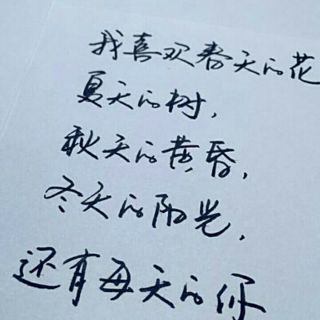 我喜欢春天的花
夏天的树，
秋天的黄昏，
冬天的阳光，
还有每天的你